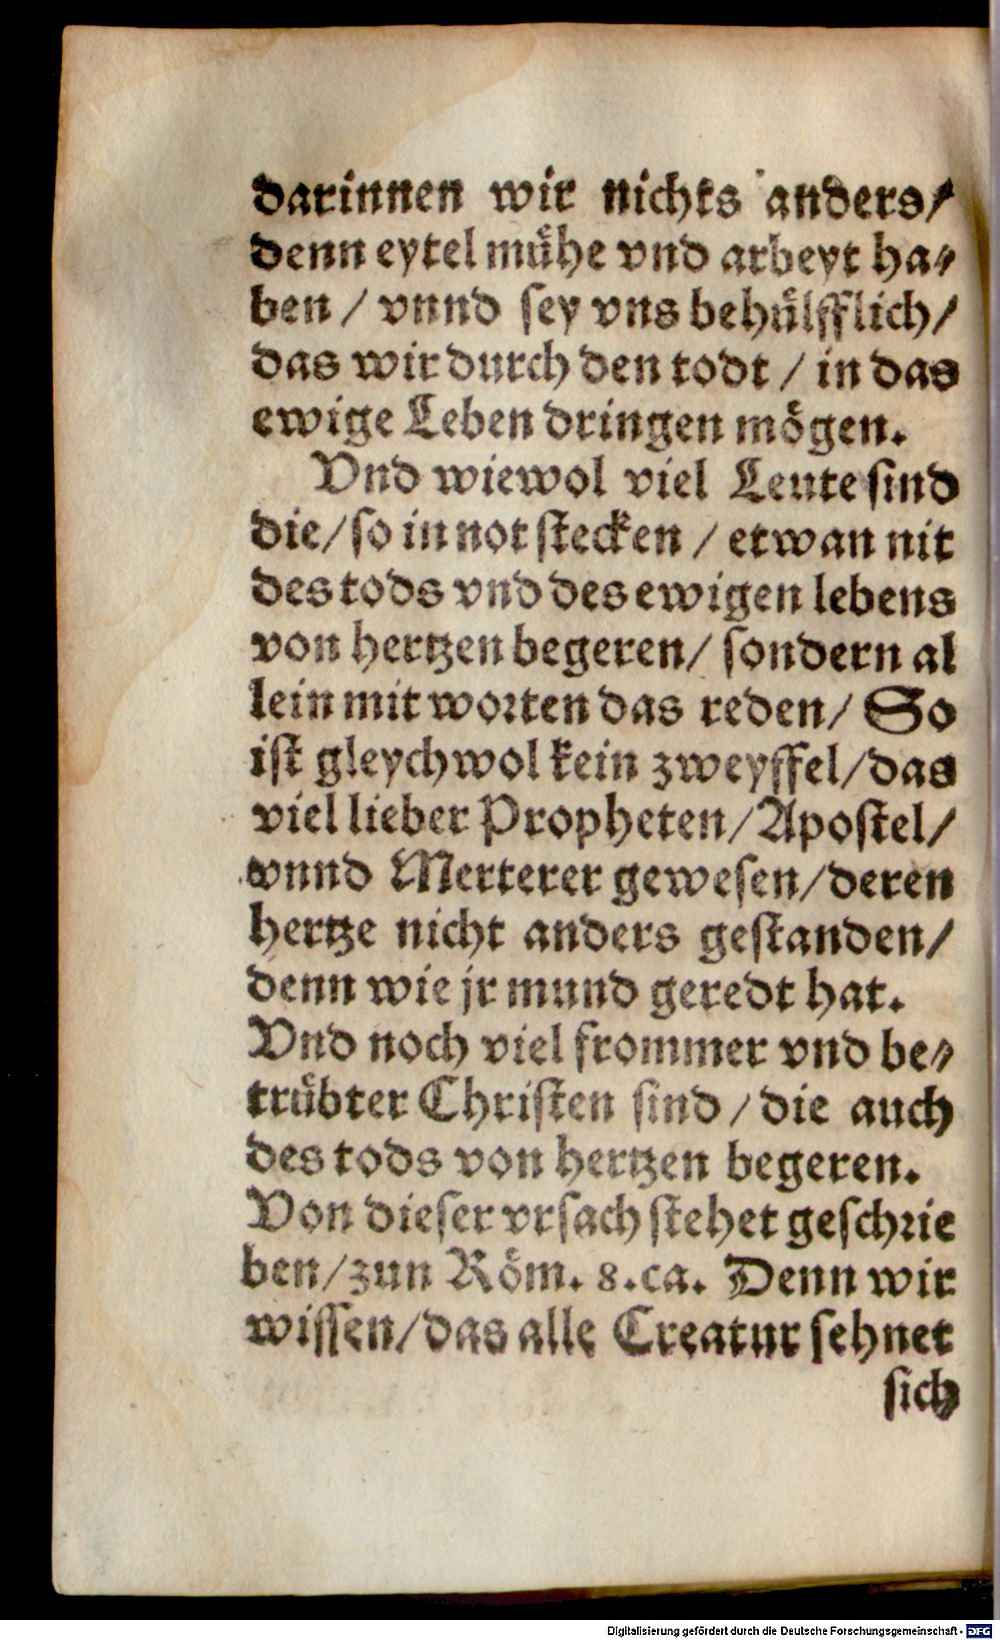 darinnen wir nichts anders/
denn eytel mühe vnd arbeyt ha⸗
ben / vnnd sey vns behülfflich/
das wir durch den todt / in das
ewige Leben dringen mögen.
Vnd wiewol viel Leute sind
die/ so in not stecken / etwan nit
des tods vnd des ewigen lebens
von hertzen begeren/ sondern al
lein mit worten das reden/ So
ist gleychwol kein zweyffel/ das
viel lieber Propheten/ Apostel/
vnnd Merterer gewesen/ deren
hertze nicht anders gestanden/
denn wie jr mund geredt hat.
Vnd noch viel frommer vnd be⸗
trübter Christen sind / die auch
des tods von hertzen begeren.
Von dieser vrsach stehet geschrie
ben/ zun Röm. 8. ca. Denn wir
wissen/ das alle Creatur sehnet
sich
Digitalisierung gefördert durch die Deutsche Forschungsgemeinschaft - DFG